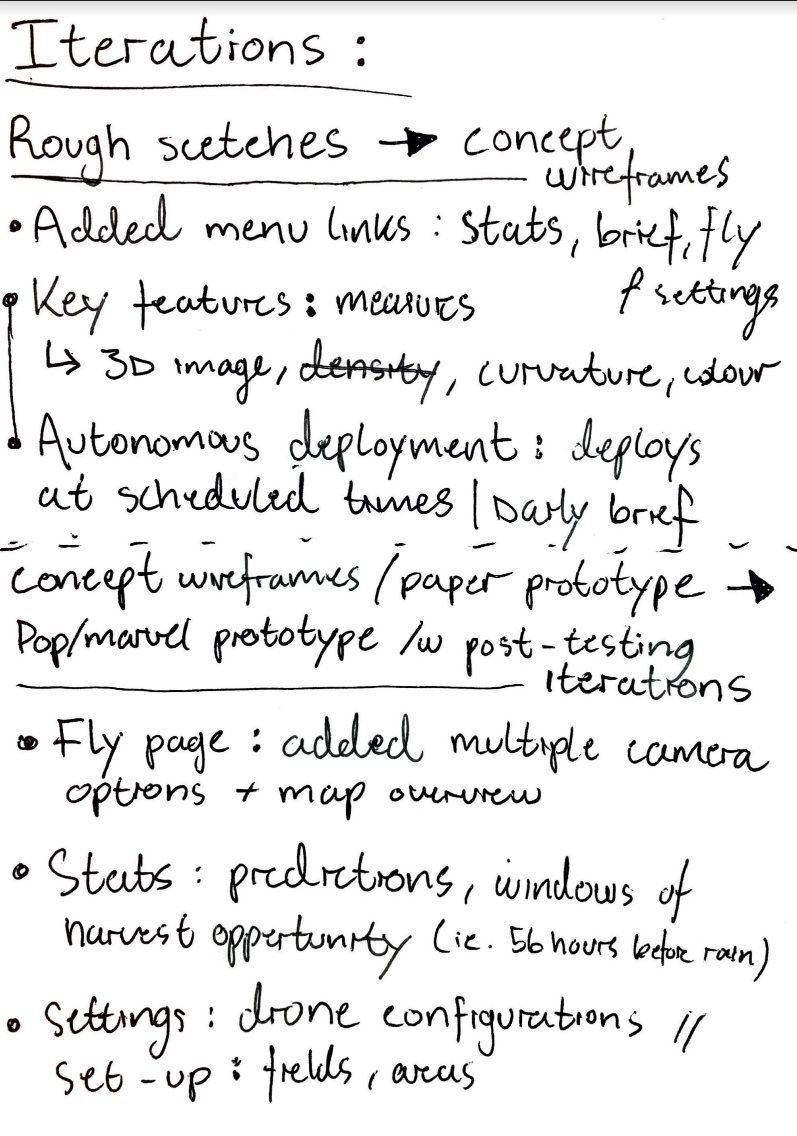 Iterations :
Rough scetches → concept
wireframes
• Added menu links : stats, brief, fly
& settings
• Key features : measures
↳ 3D image, density, curvature, colour
• Autonomous deployment : deploys
at scheduled times | Daily brief
concept wireframes / paper prototype →
Pop/marvel prototype /w post-testing
iterations
• Fly page : added multiple camera
options + map overview
• Stats : predictions, windows of
harvest opportunity (ie. 56 hours before rain)
• Settings : drone configurations //
set-up : fields, areas